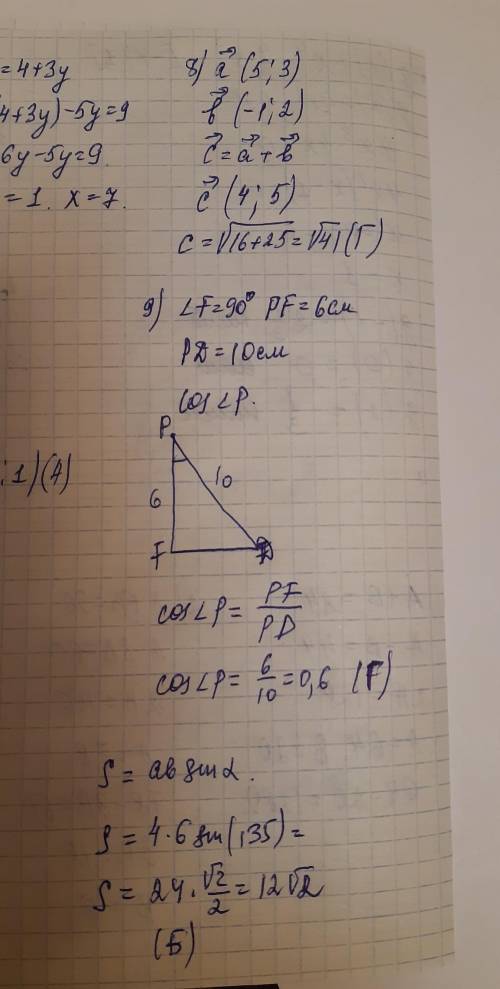 =4+3y
4+3y)-5y=9
6y-5y=9
=1. x=7.
;1)(4)
8) a⃗ (5;3)
b⃗ (-1;2)
c⃗=a⃗+b⃗
c⃗ (4;5)
c=√16+25=√41(Г)
9) ∠F=90° PF=6см
PD=10см
cos∠P.
P
6
10
F
D
cos∠P= PF/PD
cos∠P= 6/10=0,6 (Г)
S=ab sinα.
S=4·6 sin(135)=
S=24·√2/2=12√2
(Б)